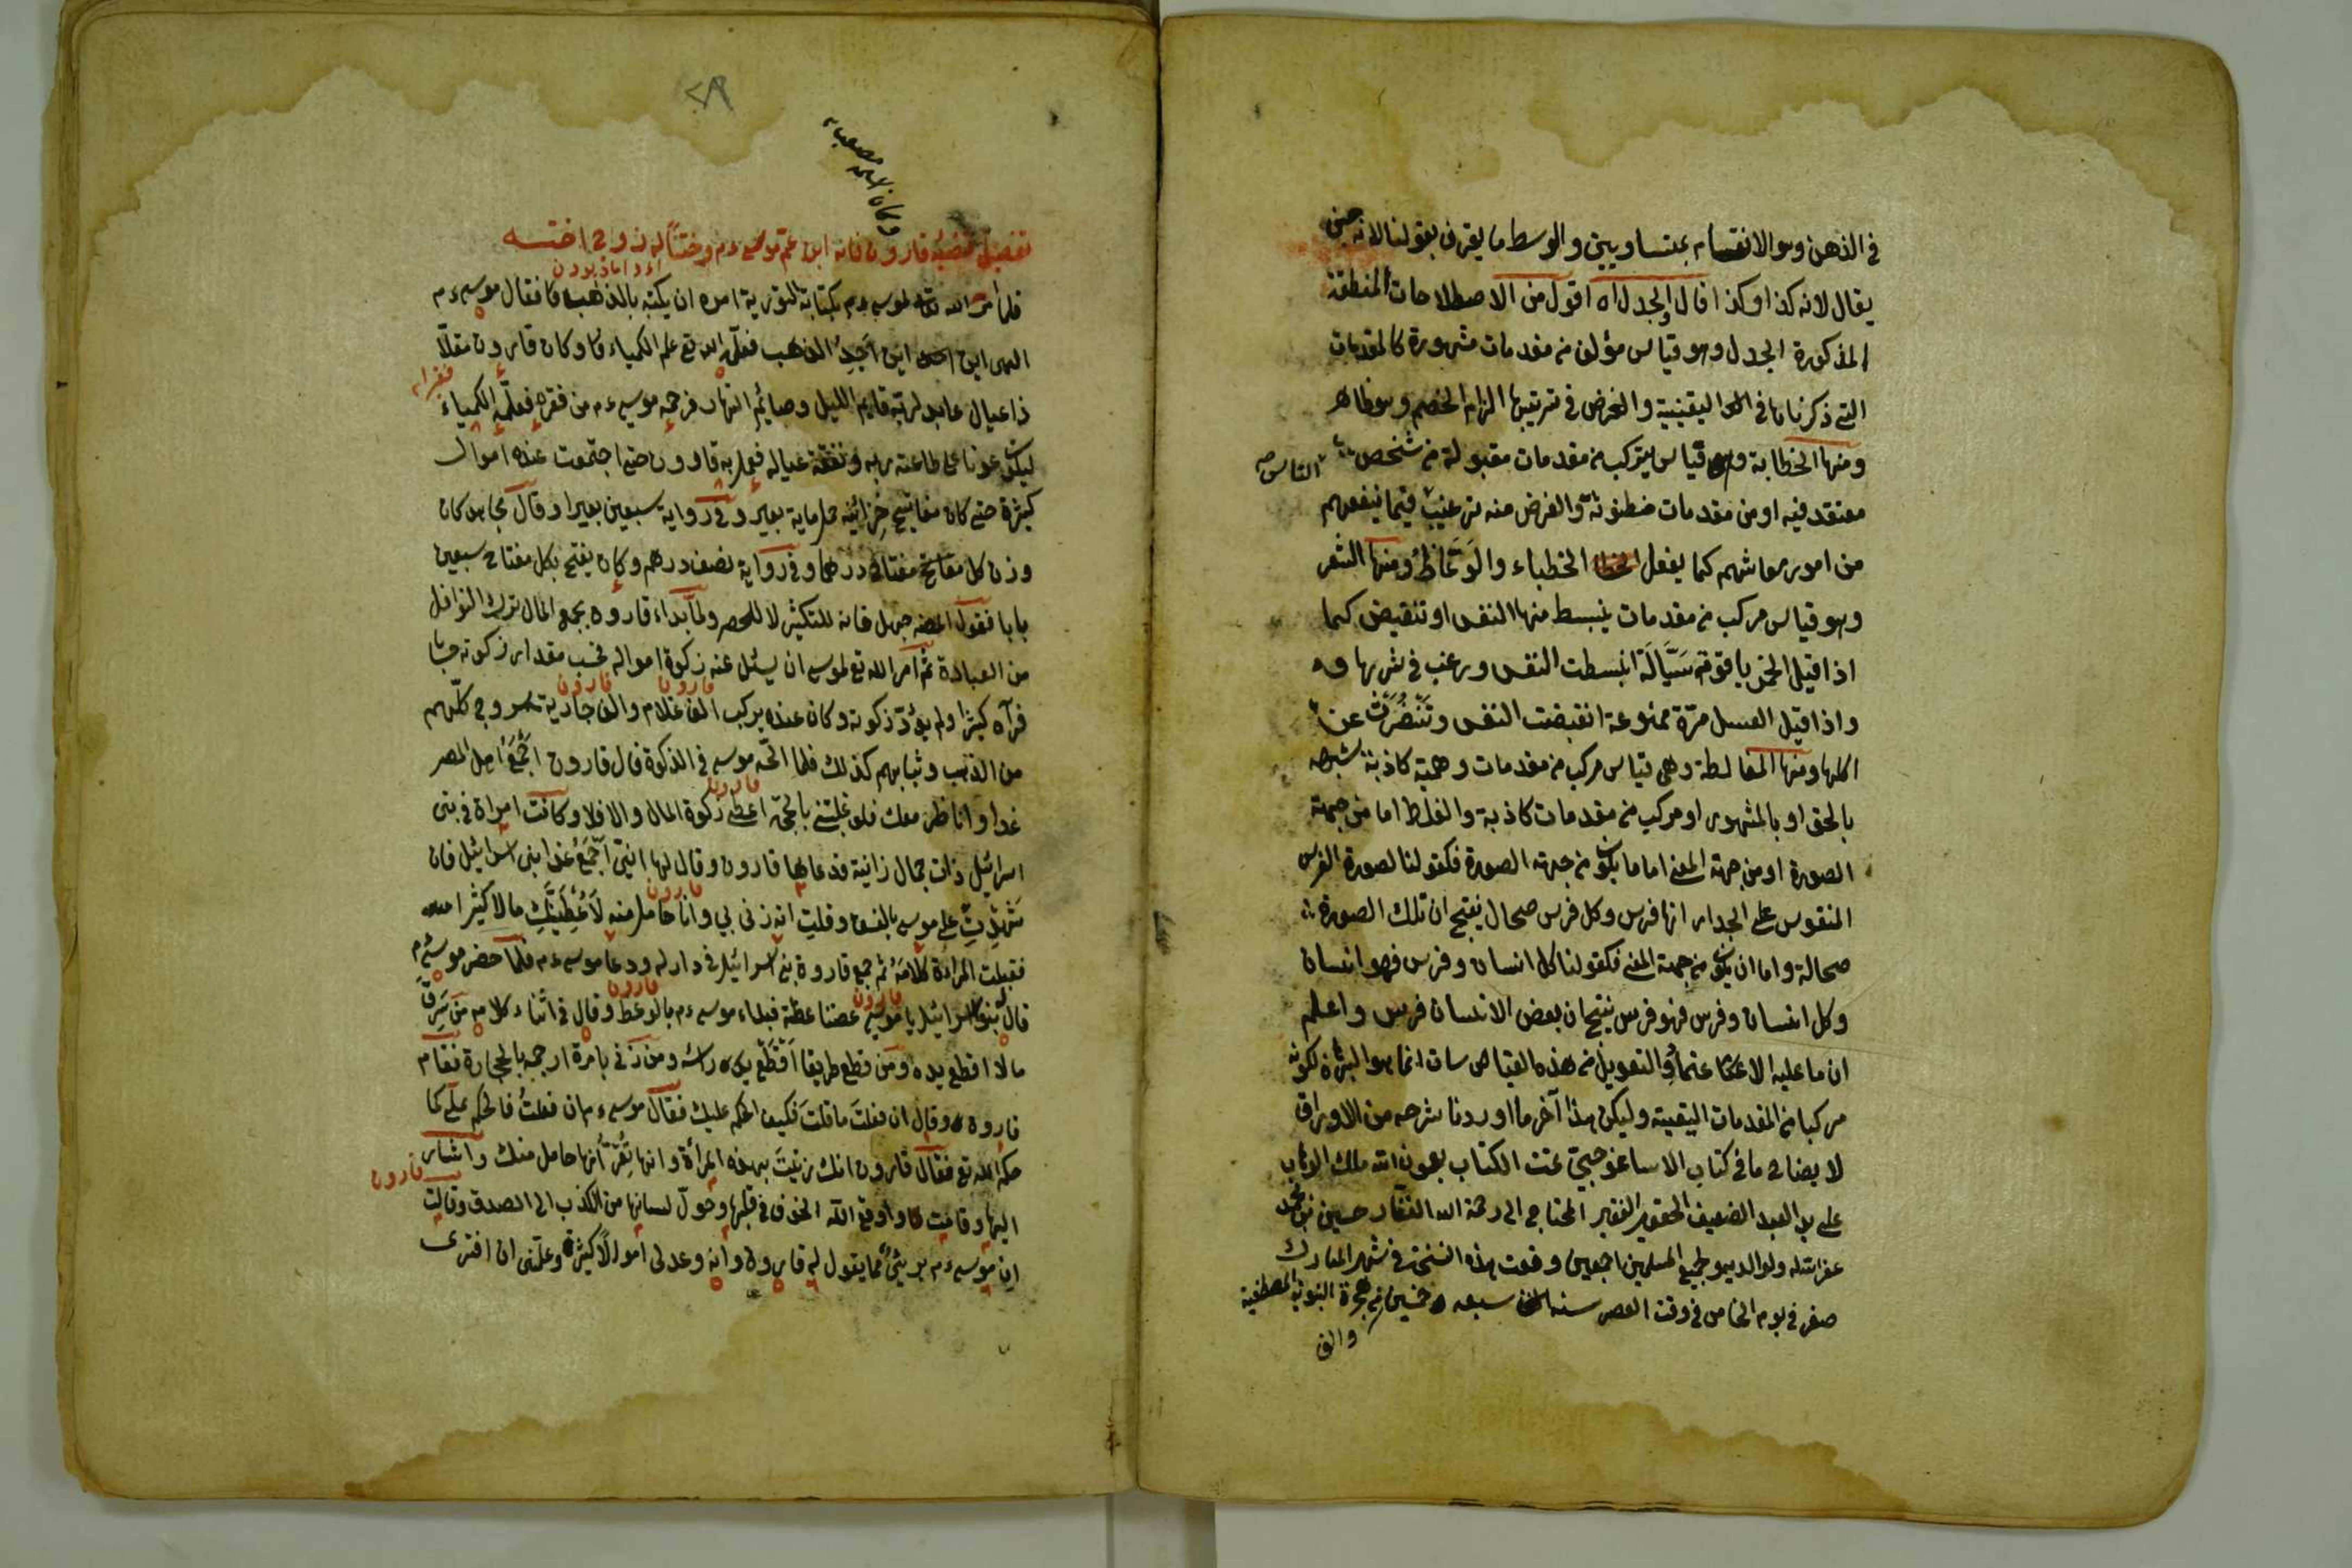 في الذهن وهو الانقسام بمتساويين والوسط ما يقرن بقولنا لانه حين
يقال لانه كذا وكذا قال والجدل اه اقول من الاصطلاحات المنطقية
المذكورة الجدل وهو قياس مؤلف من مقدمات مشهورة كالمقدمات
التي ذكرناها في اليقينية والغرض في ترتيبها الزام الخصم وهو ظاهر
ومنها الخطابة وهو قياس يتركب من مقدمات مقبولة من شخص
الناس
معتقد فيه او من مقدمات مظنونة والغرض منه ترغيب فيما ينفعهم
من امور معاشهم كما يفعل الخطباء والوعاظ ومنها الشعر
وهو قياس مركب من مقدمات ينبسط منها النفس او تنقبض كما
اذا قيل الخمر ياقوتة سيالة انبسطت النفس ورغب في شربها
واذا قيل العسل مرة ممنوعة انقبضت النفس وتنفرت عن
اكلها ومنها المغالطة وهي قياس مركب من مقدمات وهمية كاذبة شبيهة
بالحق او بالمشهور او مركب من مقدمات كاذبة والغلط اما من جهة
الصورة او من جهة المعنى اما ما يكون من جهة الصورة فكقولنا لصورة الفرس
المنقوش على الجدار انها فرس وكل فرس صهال ينتج ان تلك الصورة
صهالة واما ان يكون من جهة المعنى فكقولنا كل انسان وفرس فهو انسان
وكل انسان وفرس فهو فرس ينتج ان بعض الانسان فرس واعلم
ان ما عليه الاعتماد والتعويل من هذه القياسات انما هو البرهان لكونه
مركبا من المقدمات اليقينية وليكن هذا آخر ما اوردنا شرحه من الاوراق
لايضاح ما في كتاب الايساغوجي تمت الكتاب بعون الله ملك الوهاب
على يد العبد الضعيف الحقير الفقير المحتاج الى رحمة الله الغفار حسين بن محمد
غفر الله له ولوالديه ولجميع المسلمين اجمعين وقعت هذه النسخة في شهر المبارك
صفر في يوم الخامس في وقت العصر سنه سبعه وخمسين من هجرة النبوية المصطفية
والف
٢٨
تفصيل قضية قارون فانه ابن عم موسى ءم وختنا له زوج اخته
فلما امر الله تعه لموسى ءم بكتابة التورية امره ان يكتبه بالذهب فقال موسى ءم
الهى اين اجد الذهب فعلمه الله تع علم الكمياء وكان قارون مقلا
فقرا
ذا عيال عابد لربه قايم الليل وصايم النهار فرحمه موسى ءم من فقره فعلمه الكمياء
ليكون عونا على طاعته ربه ونفقة عياله فعمل به قارون حتى اجتمعت عنده اموال
كثيرة حتى كان مفاتيح خزائنه حمل ماية بعير وفي رواية سبعين بعيرا وقال مجاهد كان
وزن كل مفتاح درهما وفي رواية نصف درهم وكان يفتح بكل مفتاح سبعين
بابا فقوله جهل فانه للتكثير لا للحصر ولما بداء قارون بجمع المال ترك النوافل
من العبادة ثم امر الله تع لموسى ان يسئل عنه زكوة امواله فحسب مقدار زكوته حسابا
قارون قارون
فرآه كثيرا ولم يؤد زكوته وكان عنده يركب الف غلام والف جارية سروجي كلهم
من الذهب وثيابهم كذلك فلما الح موسى في الزكوة قال قارون اجمع اهل المصر
قارون
غدا وانا ظر معك فلو غلبتني بالحجة اعطي زكوة المال والا فلا وكانت امراة في بني
اسرائيل ذات جمال زانية فدعاها قارون وقال لها انني اجمع غدا بنى اسرائيل فان
قارون
شهدت على موسى بالفسق وقلت انه زنى بي وانا حامل منه لاعطينك مالا كثيرا
فقبلت المراءة كلامه ثم جمع قارون بني اسرائيل في داره ودعا موسى ءم فلما حضر موسى ءم
قارون قارون
قال بنو اسرائيل يا موسى عظنا عظة فبداء موسى ءم بالوعظ وقال في اثناء كلامه من سرق
مالا اقطع يده ومن قطع طريقا اقطع يده راسه ومن زنى بامرة ارجمه بالحجارة فقام
قارون وقال ان فعلت ما قلت فكيف الحكم عليك فقال موسى ءم ان فعلت فالحكم علي كما
حكم الله تع فقال قارون انك زنيت بهذه المرأة وانها تقر انها حامل منك واشار
قارون
اليها وقامت واوقع الله الخوف في قلبها وحول لسانها من الكذب الى الصدق وقالت
ان موسى ءم بريئ مما يقول له قارون وانه وعد لى اموالا كثيرة وعلمنى ان افترى